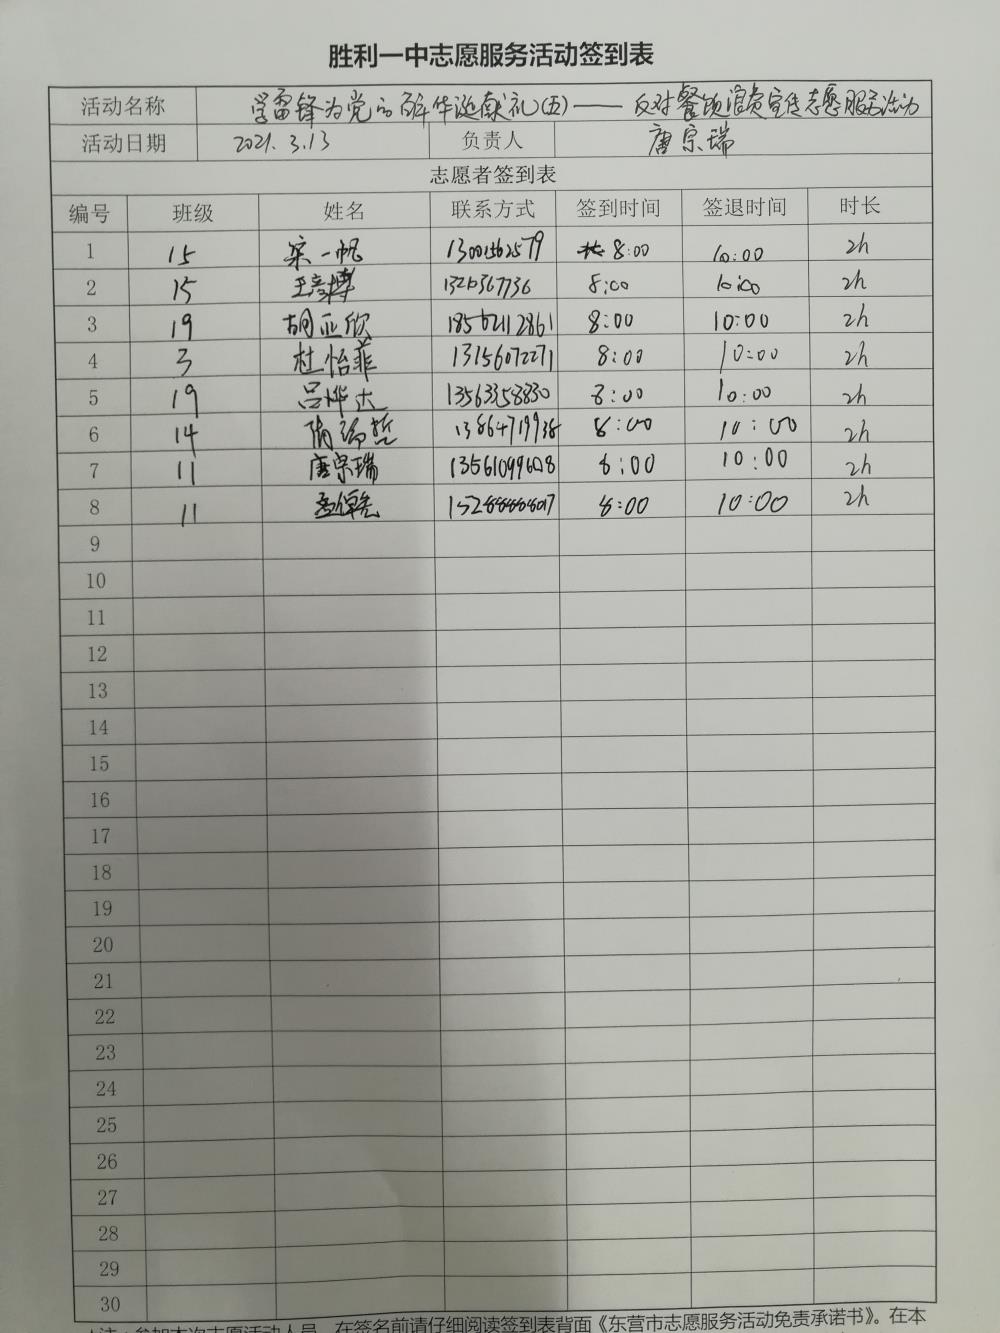 胜利一中志愿服务活动签到表
活动名称 学雷锋为党的百年华诞献礼(五)——反对餐饮浪费宣传志愿服务活动
活动日期 2021.3.13 负责人 唐宗瑞
志愿者签到表
编号 班级 姓名 联系方式 签到时间 签退时间 时长
1 15 宋一帆 8:00 10:00 2h
2 15 王彦博 8:00 10:00 2h
3 19 胡亚欣 18562112861 8:00 10:00 2h
4 3 杜怡菲 13156072271 8:00 10:00 2h
5 19 吕烨达 13563358830 8:00 10:00 2h
6 14 8:00 10:00 2h
7 11 唐宗瑞 13561099608 8:00 10:00 2h
8 11 8:00 10:00 2h
9
10
11
12
13
14
15
16
17
18
19
20
21
22
23
24
25
26
27
28
29
30
参加本次志愿活动人员,在签名前请仔细阅读签到表背面《东营市志愿服务活动免责承诺书》。在本